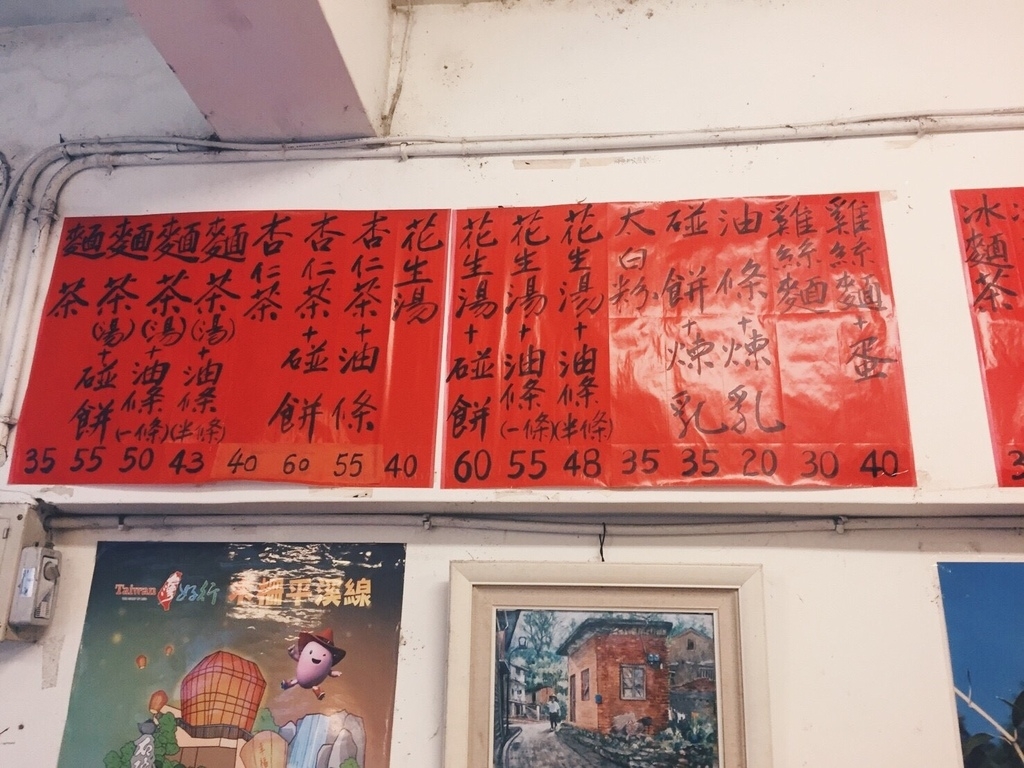 麵茶 35
麵茶(湯)+碰餅 55
麵茶(湯)+油條(一條) 50
麵茶(湯)+油條(半條) 43
杏仁茶 40
杏仁茶+碰餅 60
杏仁茶+油條 55
花生湯 40
花生湯+碰餅 60
花生湯+油條(一條) 55
花生湯+油條(半條) 48
太白粉 35
碰餅+煉乳 35
油條+煉乳 20
雞絲麵 30
雞絲麵+蛋 40
冰麵茶
Taiwan 好行
木柵平溪線